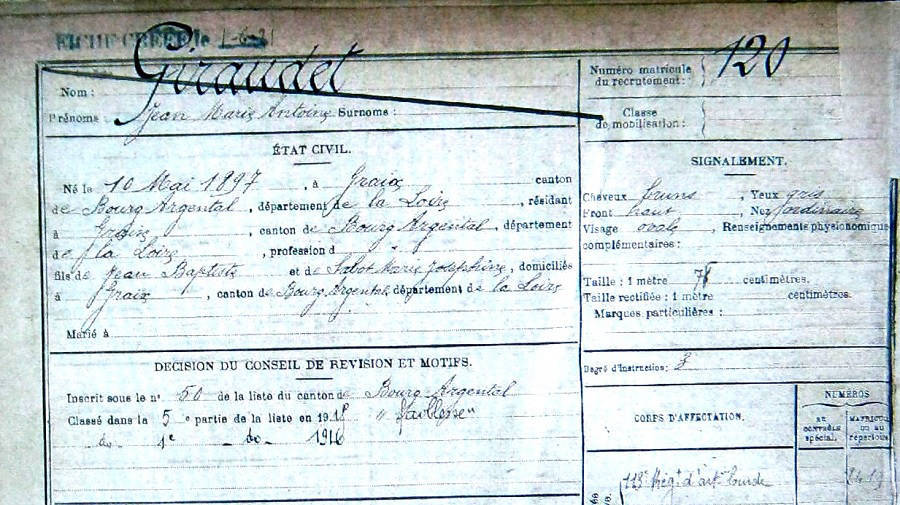 FICHE CRÉÉE le 1-6-21
Nom : Giraudet
Prénoms : Jean Marie Antoine Surnoms :
Numéro matricule du recrutement : 120
Classe de mobilisation :
ÉTAT CIVIL.
Né le 10 Mai 1897, à Graix canton
de Bourg Argental, département de la Loire, résidant
à Graix, canton de Bourg Argental, département
de la Loire, profession d "
fils de Jean Baptiste et de Sabot Marie Joséphine, domiciliés
à Graix, canton de Bourg Argental département de la Loire
Marié à
DECISION DU CONSEIL DE REVISION ET MOTIFS.
Inscrit sous le n°. 50 de la liste du canton de Bourg Argental
Classé dans la 5 e partie de la liste en 1915 "faiblesse"
do 1e do 1916
SIGNALEMENT.
Cheveux bruns, Yeux gris
Front haut, Nez ordinaire
Visage ovale, Renseignements physionomique
complémentaires :
Taille : 1 mètre 78 centimètres.
Taille rectifiée : 1 mètre centimètres.
Marques particulières :
Degré d'instruction : 3
CORPS D'AFFECTATION.
NUMÉROS
AU CONTRÔLE spécial.
MATRICULE ou au répertoire
113e Rég. d'art. lourde